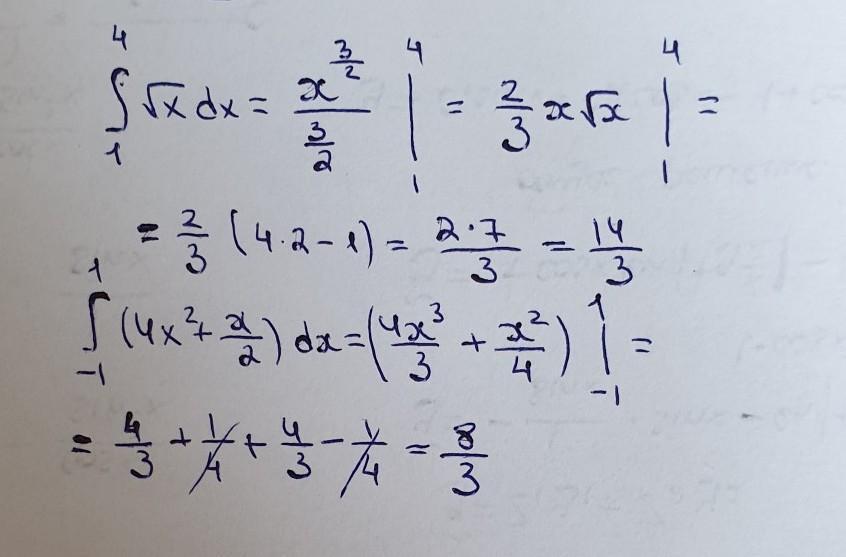 ∫₁⁴ √x dx = x^(3/2) / (3/2) |₁⁴ = 2/3 x√x |₁⁴ =
= 2/3 (4·2 − 1) = (2·7)/3 = 14/3
∫₋₁¹ (4x² + x/2) dx = (4x³/3 + x²/4) |₋₁¹ =
= 4/3 + 1/4 + 4/3 − 1/4 = 8/3